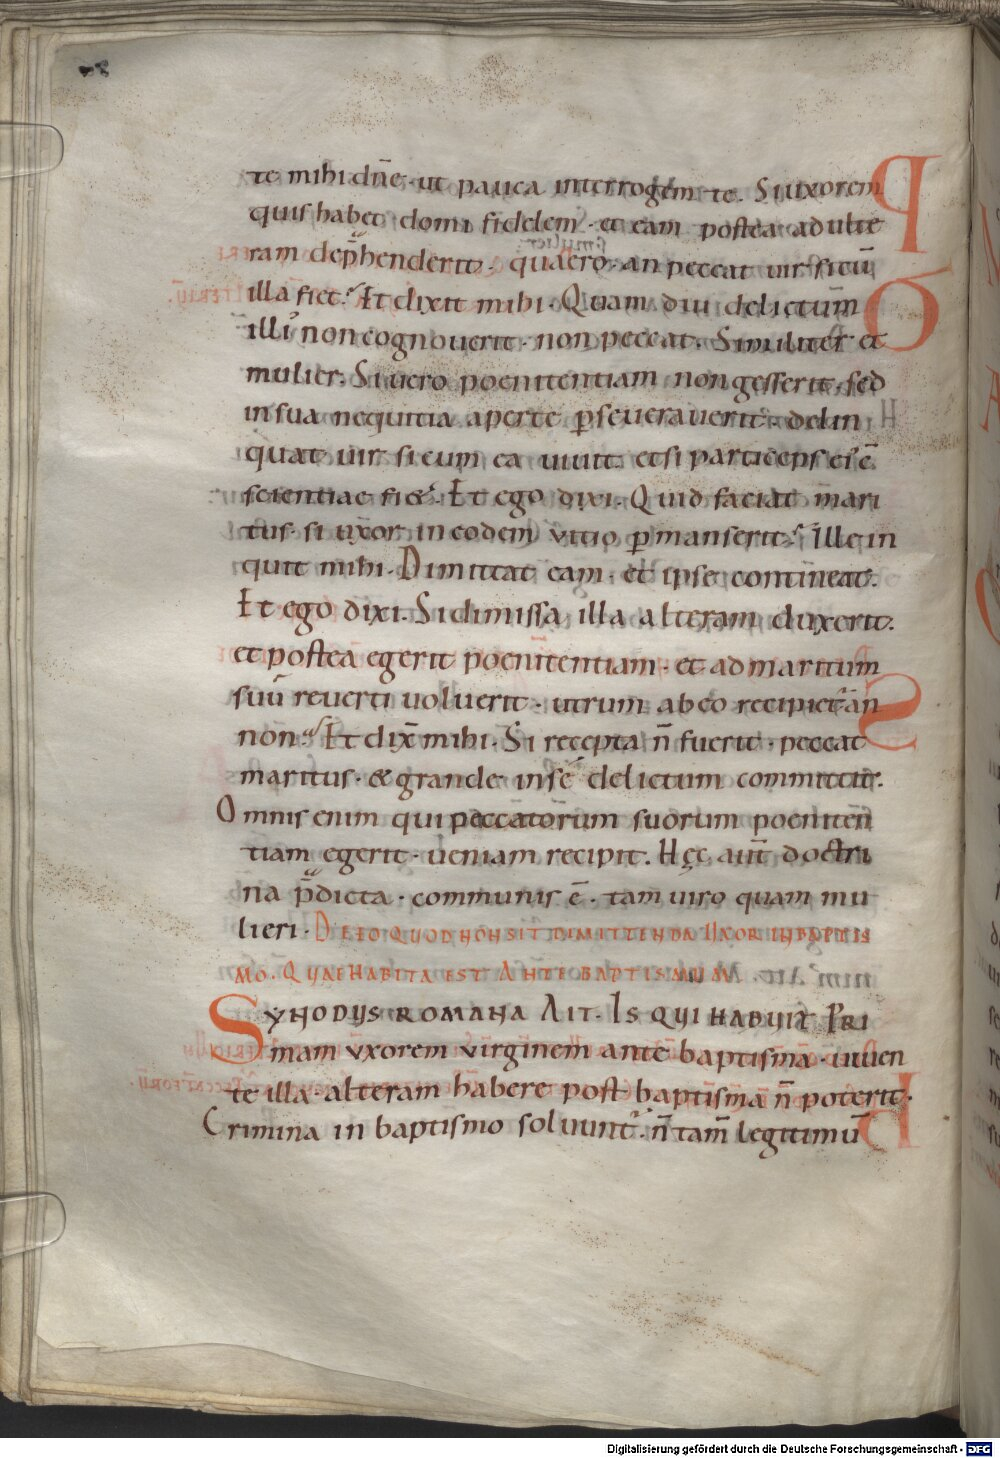 te mihi dn̄e· ut pauca interrogem te. Si uxorem
quis habet domi fidelem· et eam postea adulte
ram dep̄henderit· quaero· an peccat uir si cū
illa fiet. Et dixit mihi· Quam diu delictum
illiꝰ non cognouerit· non peccat. Similiter et
mulier. Si uero poenitentiam non gesserit· sed
in sua nequitia aperte ꝑseuerauerit· delin
quat uir si cum ea uiuit et si particeps eiꝰ ē
scientiae fi&. Et ego dixi. Quid faciat mari
tus· si uxor in eodem vitio ꝑmanserit. Ille in
quit mihi· Dimittat eam· et ipse contineat.
Et ego dixi. Si dimissa illa alteram duxerit.
et postea egerit poenitentiam· et ad maritum
suū reuerti uoluerit· utrum ab eo recipiet̄ an
non. Et dix̄ mihi· Si recepta n̄ fuerit· peccat
maritus· & grande in se delictum committit.
Omnis enim qui peccatorum suorum poeniten
tiam egerit· ueniam recipit. Hęc aut̄ doctri
na p̄dicta· communis ē· tam uiro quam mu
lieri· DE EO QUOD NON SIT DIMITTENDA UXOR IN BAPTIS
MO. QUAE HABITA EST ANTE BAPTISMUM
SYNODUS ROMANA AIT. IS QUI HABUIT PRI
mam vxorem virginem ante baptisma· uiuen
te illa· alteram habere post baptisma n̄ poterit·
Crimina in baptismo soluunt̄· n̄ tam̄ legitimū
Digitalisierung gefördert durch die Deutsche Forschungsgemeinschaft - DFG